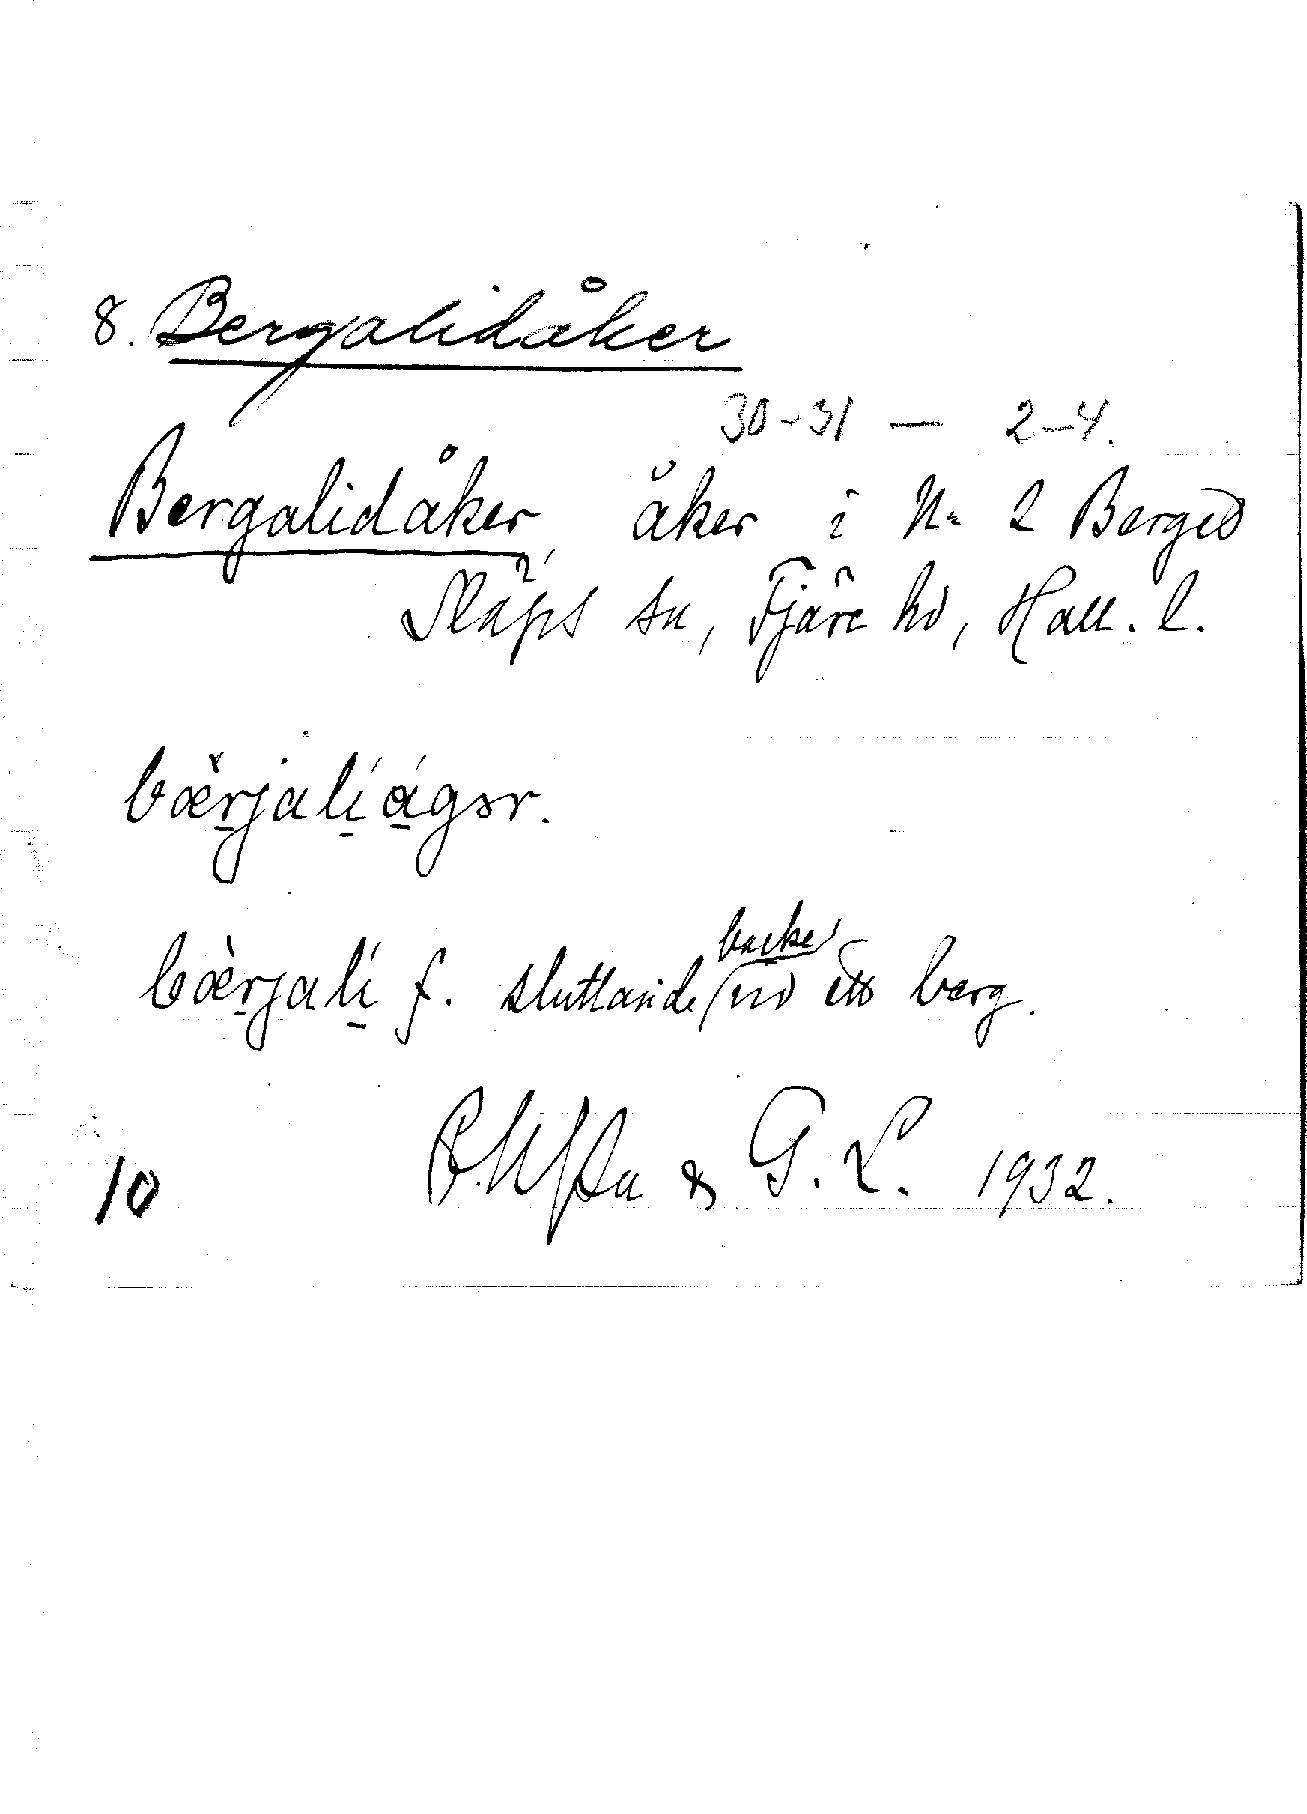 8. Bergalidåker
30-31 — 2-4.
Bergalidåker, åker i No 2 Berged
Släps sn, Fjäre hd, Hall. l.
bæ̀rjalíágər.
bæ̀rjalí f. sluttande backe vid ett berg.
& G. L. 1932.
10